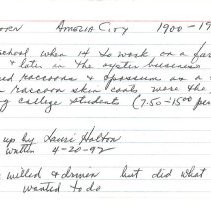 ORN AMELIA CITY 1900-19
school when 14 to work on a far
& later in the oyster business
ed raccoons & opossum as a
raccoon skin coats were the
g college students (7.50-15.00 pe
up by Lauri
written 4-20-92
willed & driven but did what
wanted to do